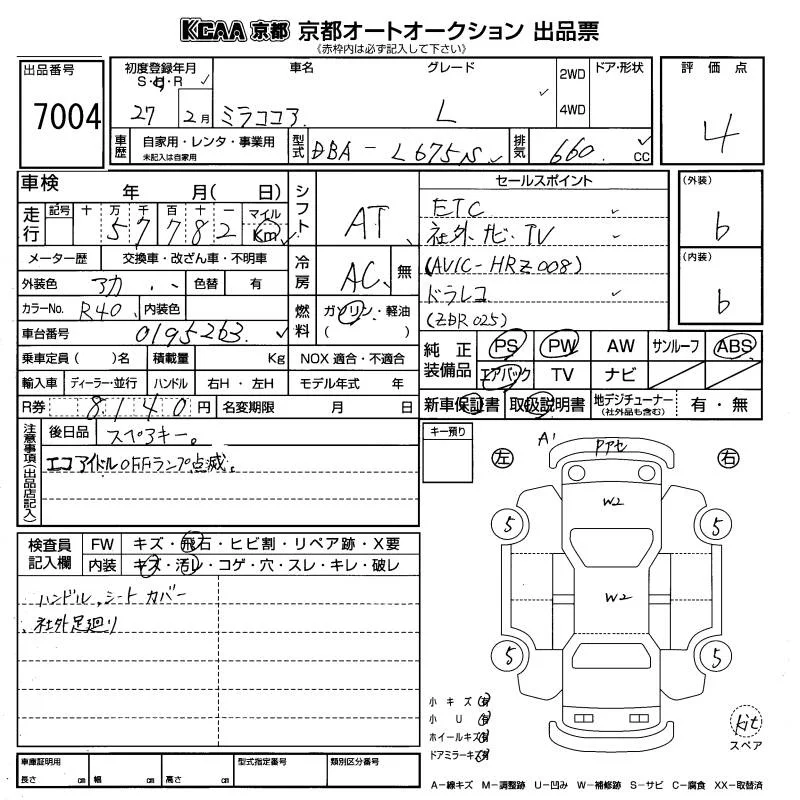 KCAA 京都 京都オートオークション 出品票
《赤枠内は必ず記入して下さい》
出品番号
7004
初度登録年月
S・H・R
27 2月
車名
ミラココア
グレード
L
2WD
4WD
ドア・形状
評価点
4
車歴
自家用・レンタ・事業用
未記入は自家用
型式
DBA - L675S
排気
660. CC
車検 年 月( 日)
走行
記号 十 万 千 百 十 一 マイル
5 7 7 8 2 Km
メーター歴 交換車・改ざん車・不明車
外装色 アカ 色替 有
カラーNo. R40 内装色
車台番号 0195263
乗車定員( )名 積載量 Kg NOX 適合・不適合
輸入車 ディーラー・並行 ハンドル 右H・左H モデル年式 年
R券 8140円 名変期限 月 日
シフト AT
冷房 AC 無
燃料 ガソリン・軽油
( )
セールスポイント
ETC
社外ナビ・TV
(AVIC-HRZ008)
ドラレコ
(ZDR025)
(外装)
b
(内装)
b
純正装備品
PS PW AW サンルーフ ABS
エアバック TV ナビ
新車保証書 取扱説明書 地デジチューナー
(社外品も含む) 有・無
注意事項(出品店記入)
後日品 スペアキー。
エコアイドルOFFランプ点滅。
検査員記入欄
FW キズ・飛石・ヒビ割・リペア跡・X要
内装 キズ・汚レ・コゲ・穴・スレ・キレ・破レ
ハンドル、シートカバー
社外足廻り
キー預り
左
右
A'
Fアセ
W2
W2
5
5
5
5
小キズ 有
小U 有
ホイールキズ 有
ドアミラーキズ 有
kit
スペア
車庫証明用
長さ cm 幅 cm 高さ cm
型式指定番号
類別区分番号
A-線キズ M-調整跡 U-凹み W-補修跡 S-サビ C-腐食 XX-取替済